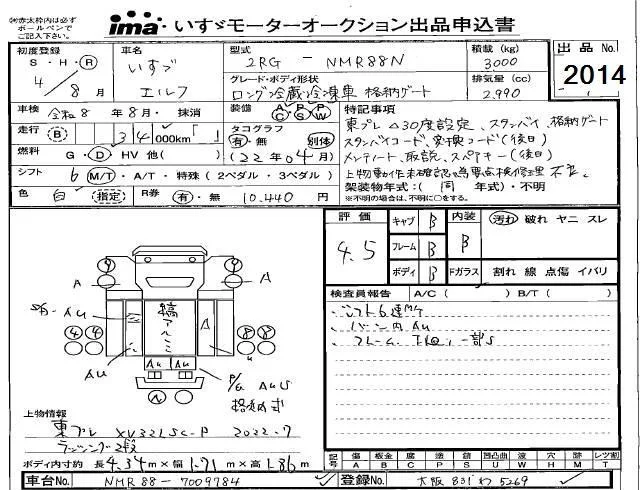 ㊟赤太枠内は必ず
ボールペンで
ご記入下さい。
ima・いすゞモーターオークション出品申込書
出品No.
2014
初度登録
S・H・Ⓡ
4年8月
車名
いすゞ
エルフ
型式
2RG - NMR88N
グレード・ボディ形状
ロング冷蔵冷凍車 格納ゲート
積載(kg)
3000
排気量(cc)
2,990
車検 令和8年8月・抹消
装備 A/C P/S P/W
走行 Ⓑ 34,000km「 」
タコグラフ
有・無 別体
(22年04月)
燃料 G・Ⓓ・HV 他( )
シフト 6 M/T・A/T・特殊(2ペダル・3ペダル)
色 白 指定
R券 有・無 10,440円
特記事項
東プレ△30度設定、スタンバイ、格納ゲート
スタンバイコード、変換コード(後日)
メンテノート、取説、スペアキー(後日)
上物動作未確認の為要点検修理 不良。
架装物年式:(同 年式)・不明
※不明の場合は、不明に○をする。
評価
4.5
キャブ B
フレーム B
ボディ B
内装
B
汚れ 破れ ヤニ スレ
Fガラス 割れ 線 点傷 イバリ
検査員報告 A/C( )B/T( )
シフト6速MT
バン内AU
フレーム、下廻り一部S
A
A
S/D AU
縞アルミ
AU
AU AU
P/G AUS
格納式
4 4
8 8
上物情報
東プレ XV32LSC-P 2022.7
ラッシング2段
ボディ内寸約 長4.34m×幅1.71m×高1.86m
記号 傷A 板金B 腐C 塗P 錆S 凹凸曲U 波W 穴H 跡M レンズ割T
車台No. NMR88-7009784
登録No. 大阪 831 わ 5269